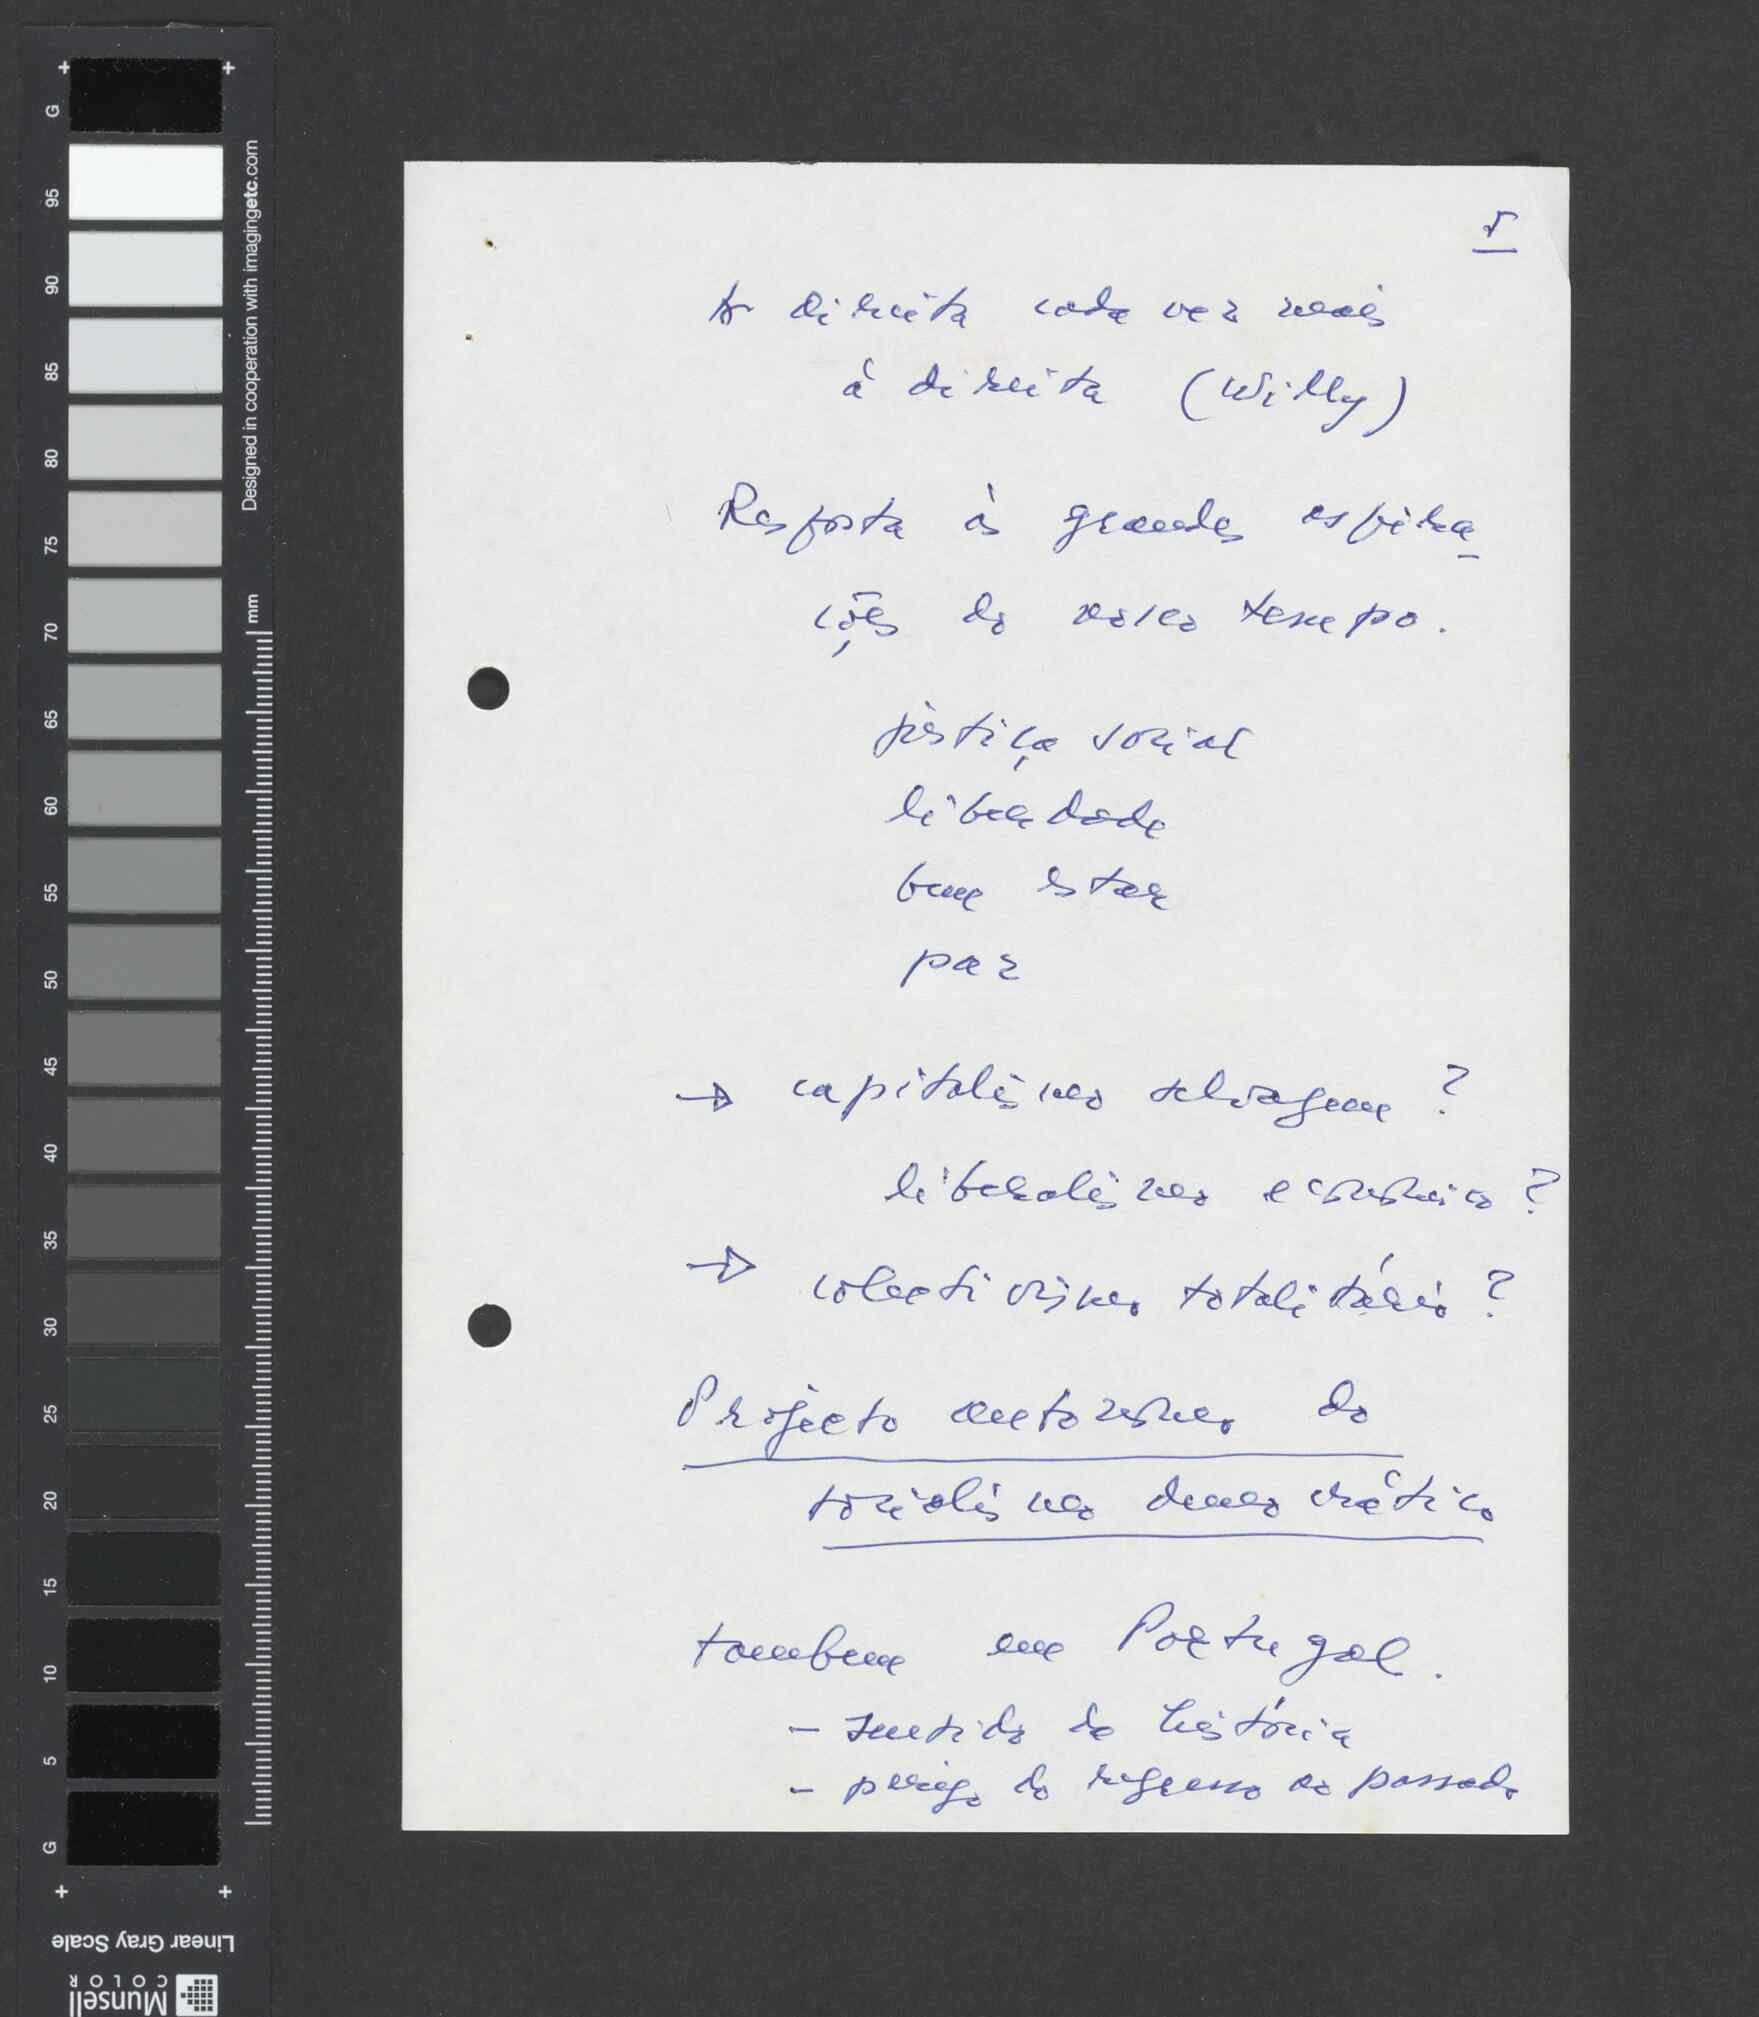 5
A direita cada vez mais
à direita (Willy)
Resposta às grandes aspira-
ções do nosso tempo.
justiça social
liberdade
bem estar
paz
→ capitalismo selvagem ?
liberalismo económico ?
→ colectivismo totalitário ?
Projecto autónomo do
socialismo democrático
tambem em Portugal.
- sentido da história
- perigo do regresso ao passado
G
95
90
85
80
75
70
65
60
55
50
45
40
35
30
25
20
15
10
5
G
Designed in cooperation with imagingetc.com
mm
Linear Gray Scale
Munsell
COLOR